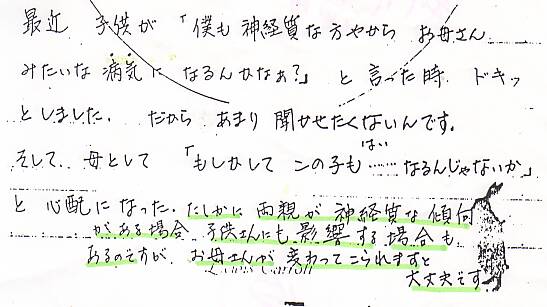 最近 子供が 「僕も 神経質な方やから お母さん
みたいな 病気に なるんかなぁ?」 と 言った時 ドキッ
としました. だから あまり 聞かせたくないんです.
そして. 母として 「もしかして この子も はい …… なるんじゃないか」
と 心配になった. たしかに 両親が 神経質な傾向
がある場合 子供さんにも 影響する場合も
あるのですが、お母さんが 変わってこられますと
Lewis Carroll
大丈夫です